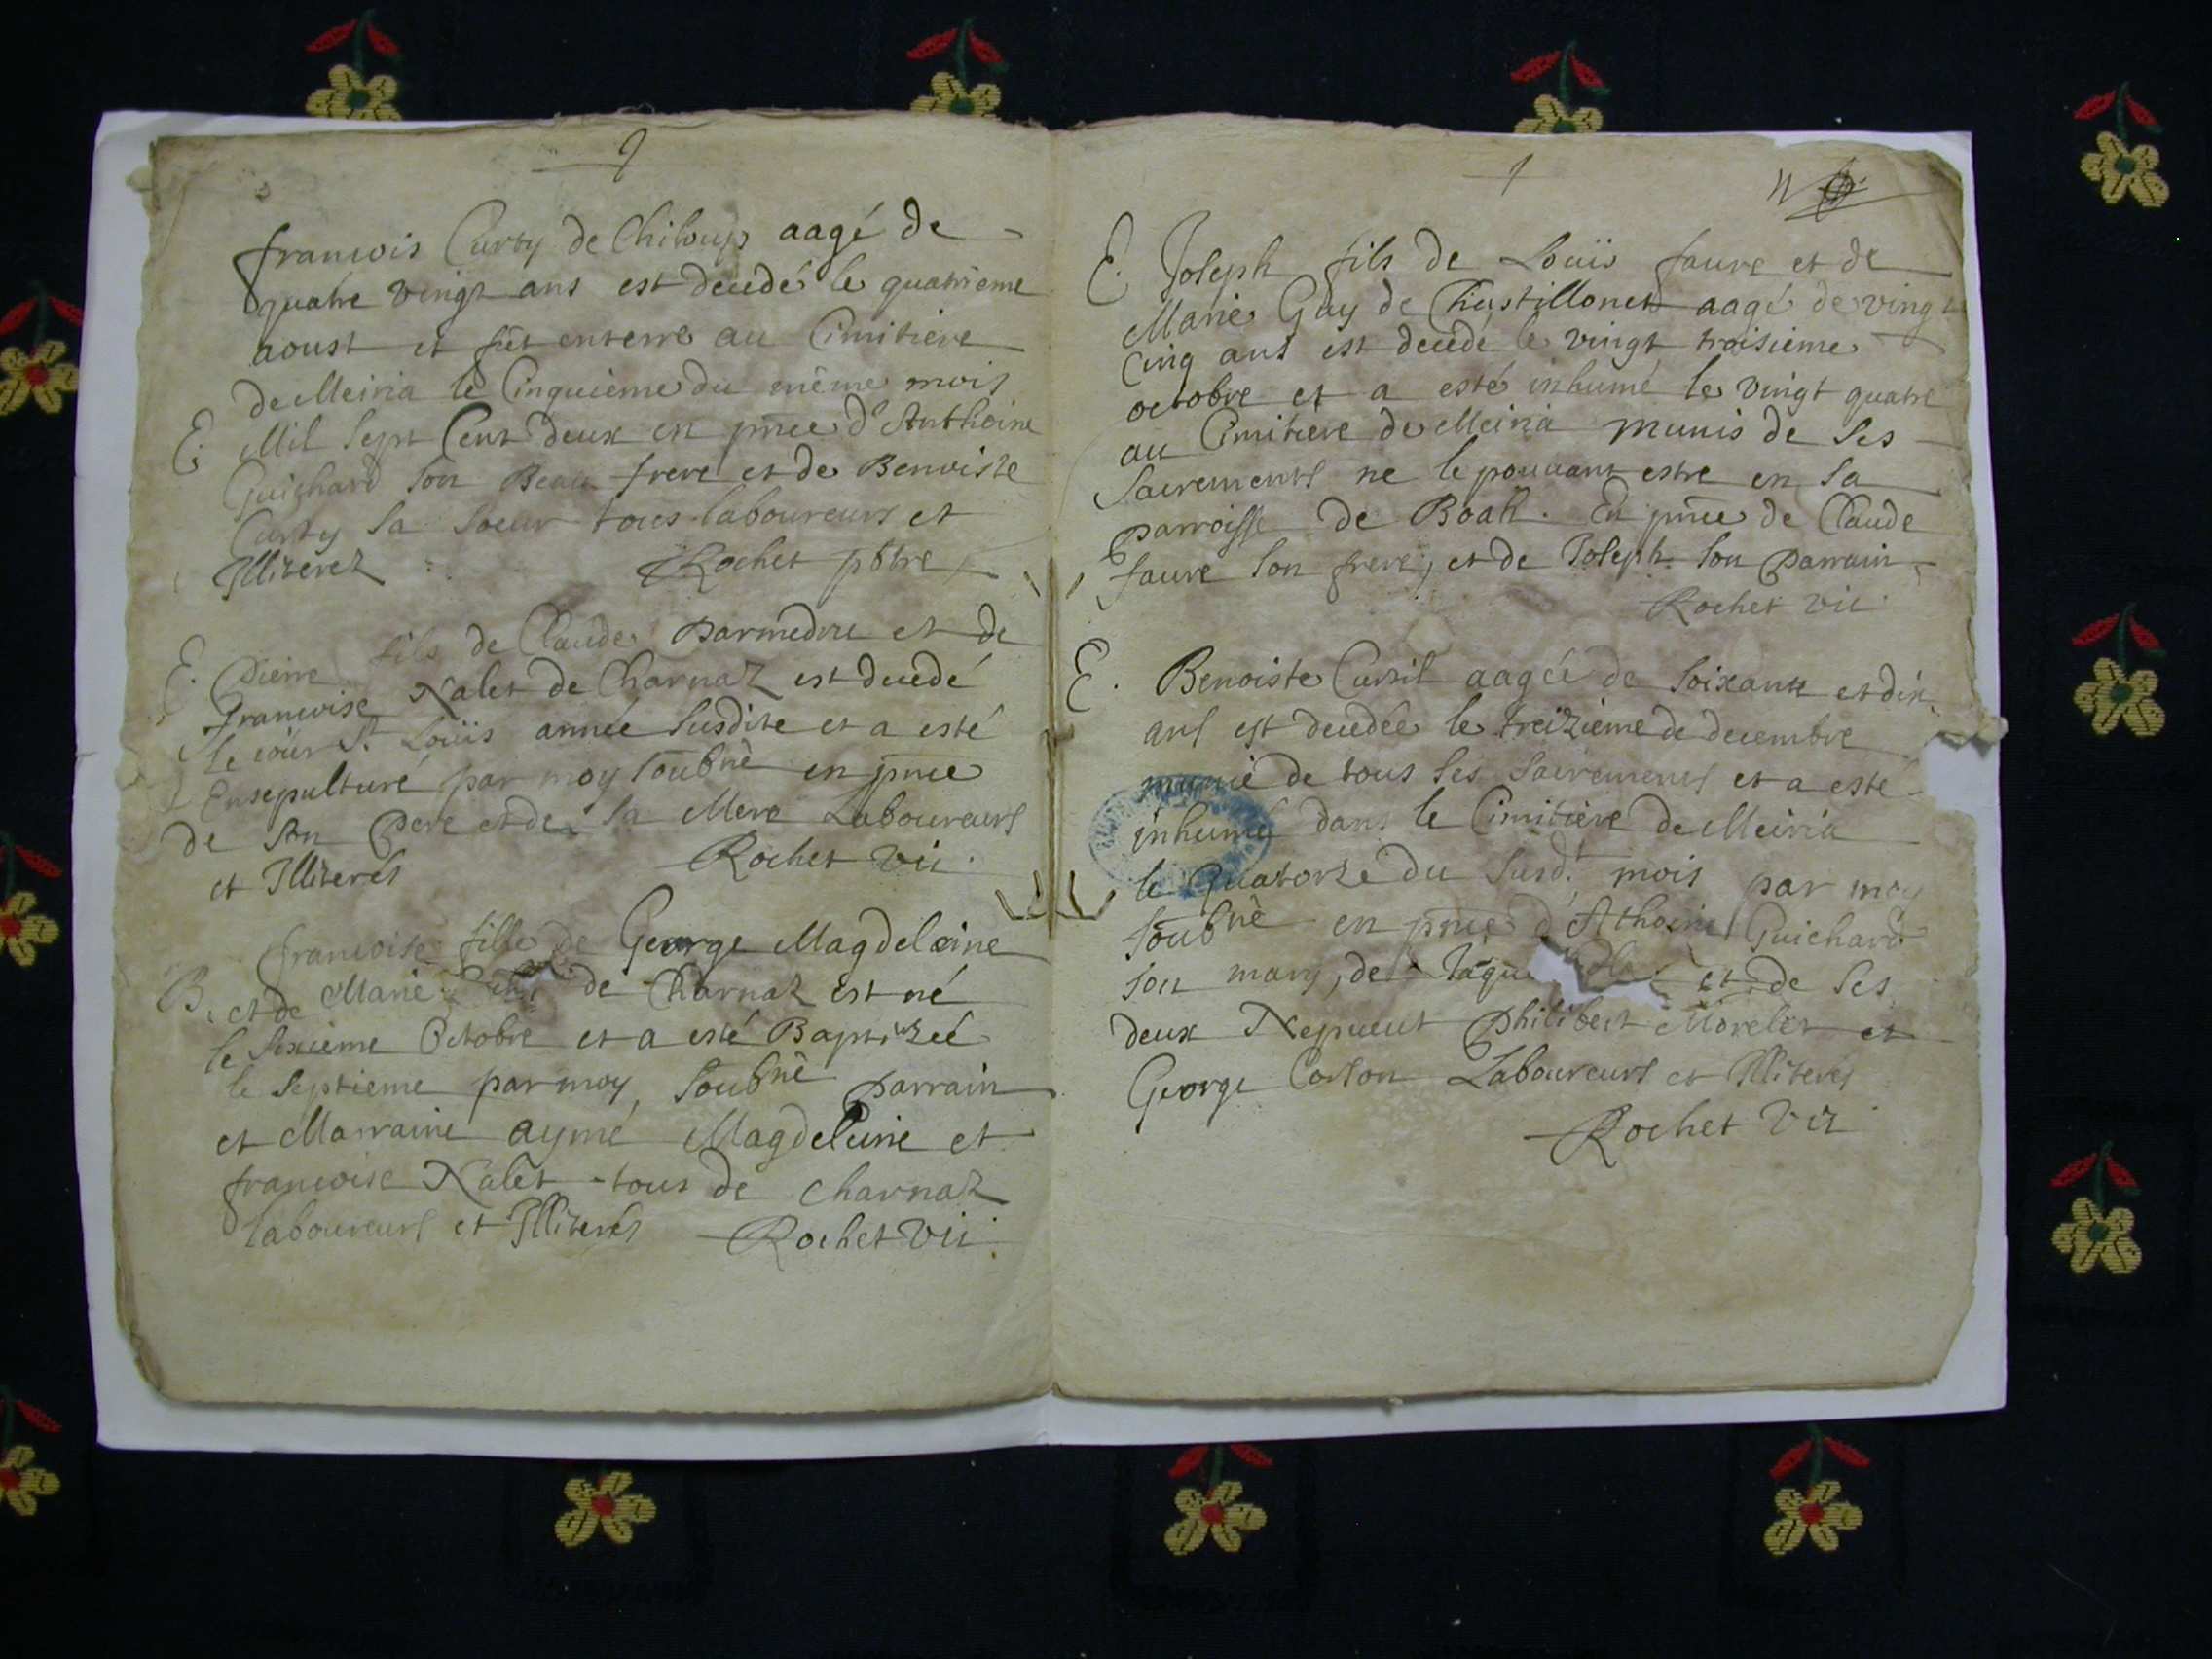 francois Curty de Chiloup aagé de
quatre vingt ans est decedé le quatrieme
aoust et fut enterre au Cimitiere
de Meiria le Cinquieme du même mois
E. Mil Sept Cent deux en pnce d'Anthoine
Guichard son Beau frere et de Benoiste
Curty sa soeur tous laboureurs et
Illiterez Rochet pbtre
E. Pierre fils de Claude et de
Francoise Nalet de Charnaz est decedé
le iour St Loüis année susdite et a esté
Ensepulturé par moy soubnè en pnce
de son Pere et de sa Mere Laboureurs
et Illiterés Rochet vic.
francoise fille de George Magdeleine
B. et de Marie de Charnaz est né
le sixieme Octobre et a esté Baptizeé
le septieme par moy soubnè parrain
et Marraine aymé Magdeleine et
francoise Nalet tous de Charnaz
laboureurs et Illiterés Rochet vic.
E. Joseph fils de Loüis faure et de
Marie Guy de aagé de vingt
Cinq ans est decedé le vingt troisieme
octobre et a esté inhumé le vingt quatre
au Cimitiere de Meiria munis de ses
Sacrements ne le pouuant estre en sa
parroisse de . En pnce de Claude
faure son frere, et de Joseph son parrain
Rochet vic.
E. Benoiste aagée de soixante et dix
ans est decedée le treizieme de decembre
munie de tous ses sacrements et a esté
inhumée dans le Cimitiere de Meiria
le Quatorze du susdt mois par moy
soubnè en pnce d'Athoine Guichard
son mary, de et de ses
deux Nepueut Philibert Morelet et
George Laboureurs et Illiterés
Rochet vic